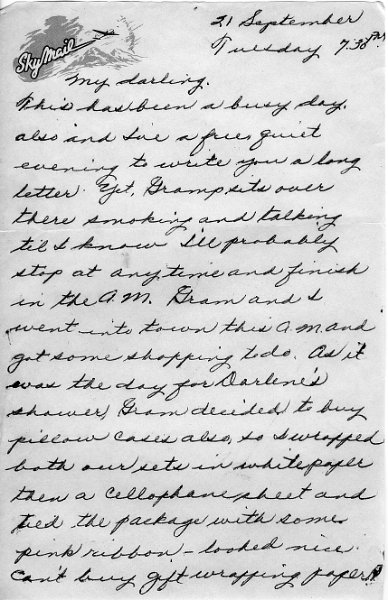 Sky Mail
21 September
Tuesday 7:30 PM
My darling.
This has been a busy day,
also and I've a free, quiet
evening to write you a long
letter. Yet, Gramp sits over
there smoking and talking
til I know I'll probably
stop at anytime and finish
in the A.M. Gram and I
went into town this A.M and
got some shopping to do. As it
was the day for Darlene's
shower, Gram decided to buy
pillow cases also, so I wrapped
both our sets in white paper
then a cellophane sheet and
tied the package with some
pink ribbon - looked nice.
Can't buy gift wrapping paper